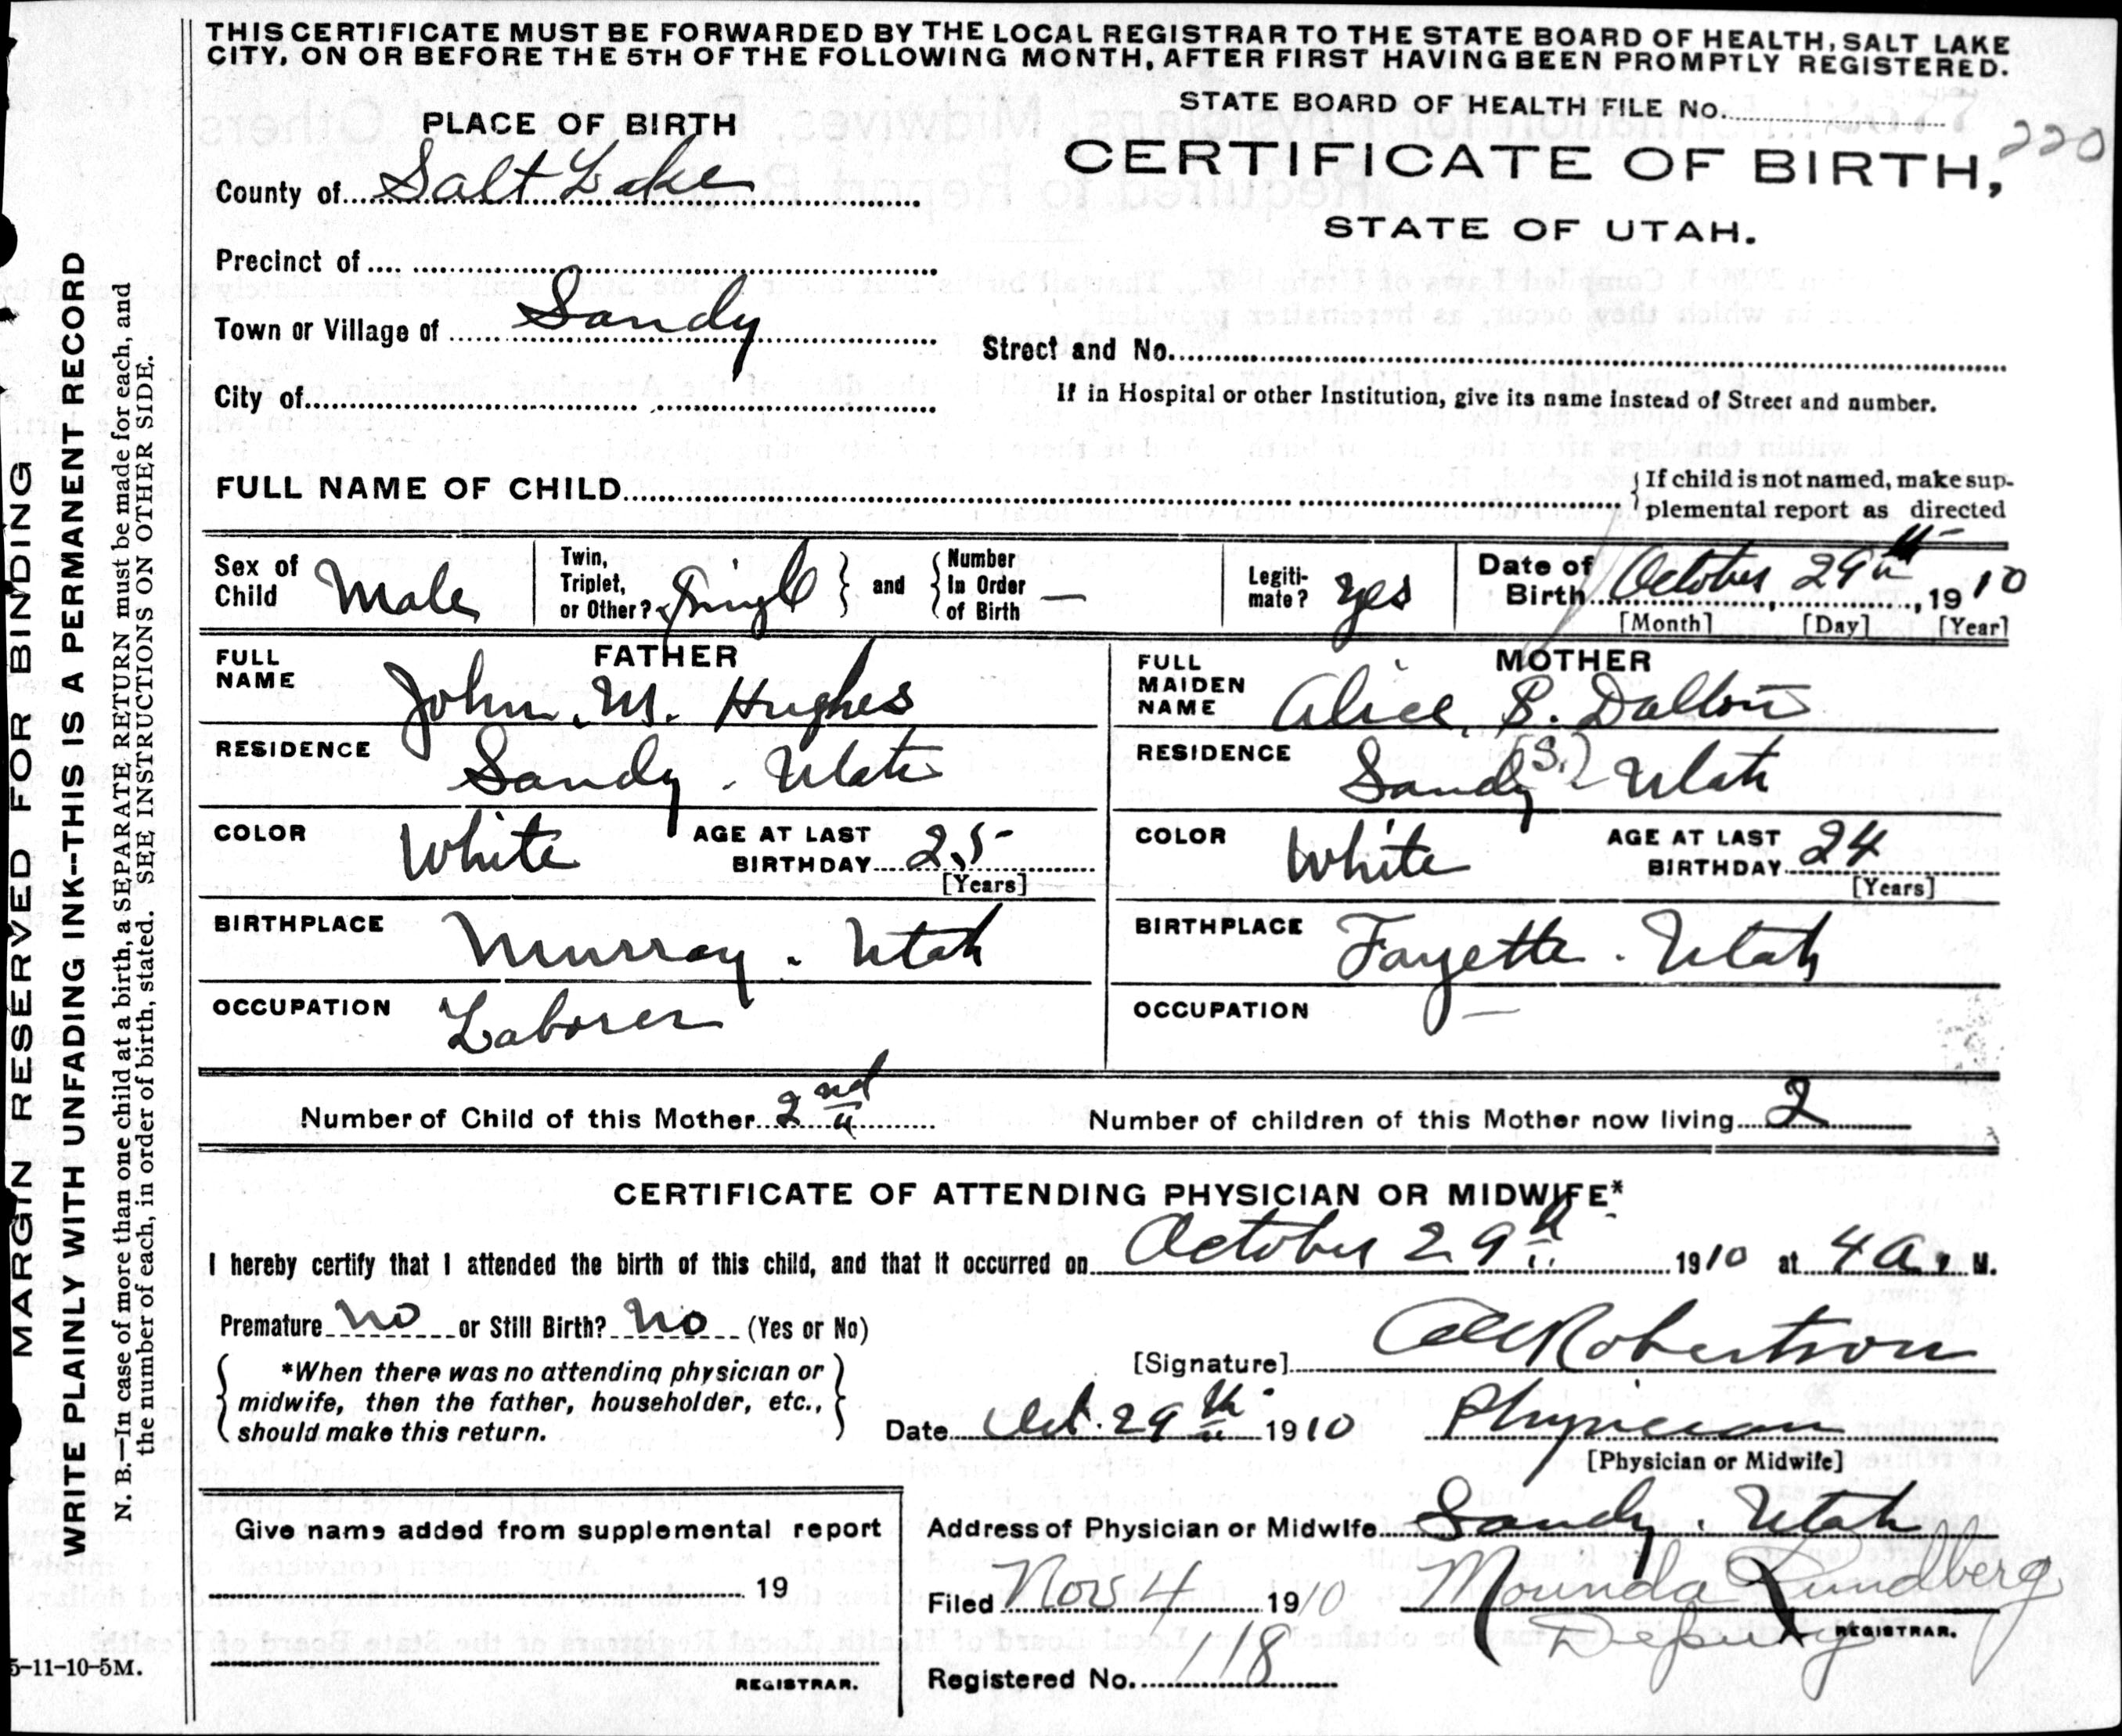 THIS CERTIFICATE MUST BE FORWARDED BY THE LOCAL REGISTRAR TO THE STATE BOARD OF HEALTH, SALT LAKE
CITY, ON OR BEFORE THE 5TH OF THE FOLLOWING MONTH, AFTER FIRST HAVING BEEN PROMPTLY REGISTERED.
STATE BOARD OF HEALTH FILE No.
220
PLACE OF BIRTH
CERTIFICATE OF BIRTH,
STATE OF UTAH.
County of Salt Lake
Precinct of
Town or Village of Sandy
Street and No.
City of
If in Hospital or other Institution, give its name instead of Street and number.
FULL NAME OF CHILD
If child is not named, make sup-
plemental report as directed
Sex of Child Male
Twin, Triplet, or Other? Single and Number In Order of Birth —
Legiti-mate? Yes
Date of Birth October 29th, 1910
[Month] [Day] [Year]
FATHER
FULL NAME John. M. Hughes
RESIDENCE Sandy. Utah
COLOR White AGE AT LAST BIRTHDAY 25
[Years]
BIRTHPLACE Murray. Utah
OCCUPATION Laborer
MOTHER
FULL MAIDEN NAME Alice, S. Dalton
(S.)
RESIDENCE Sandy Utah
COLOR White AGE AT LAST BIRTHDAY 24
[Years]
BIRTHPLACE Fayette. Utah
OCCUPATION —
Number of Child of this Mother 2nd Number of children of this Mother now living 2
CERTIFICATE OF ATTENDING PHYSICIAN OR MIDWIFE*
I hereby certify that I attended the birth of this child, and that it occurred on October 29th 1910 at 4 a. M.
Premature No or Still Birth? No (Yes or No)
*When there was no attending physician or
midwife, then the father, householder, etc.,
should make this return.
[Signature] Robertson
Date Oct. 29th 1910 Physician
[Physician or Midwife]
Address of Physician or Midwife Sandy. Utah
Give name added from supplemental report
19
REGISTRAR.
Filed Nov 4 1910 Mounda Lundberg
Deputy REGISTRAR.
Registered No. 118
MARGIN RESERVED FOR BINDING
WRITE PLAINLY WITH UNFADING INK--THIS IS A PERMANENT RECORD
N. B.--In case of more than one child at a birth, a SEPARATE RETURN must be made for each, and
the number of each, in order of birth, stated. SEE INSTRUCTIONS ON OTHER SIDE.
5-11-10-5M.